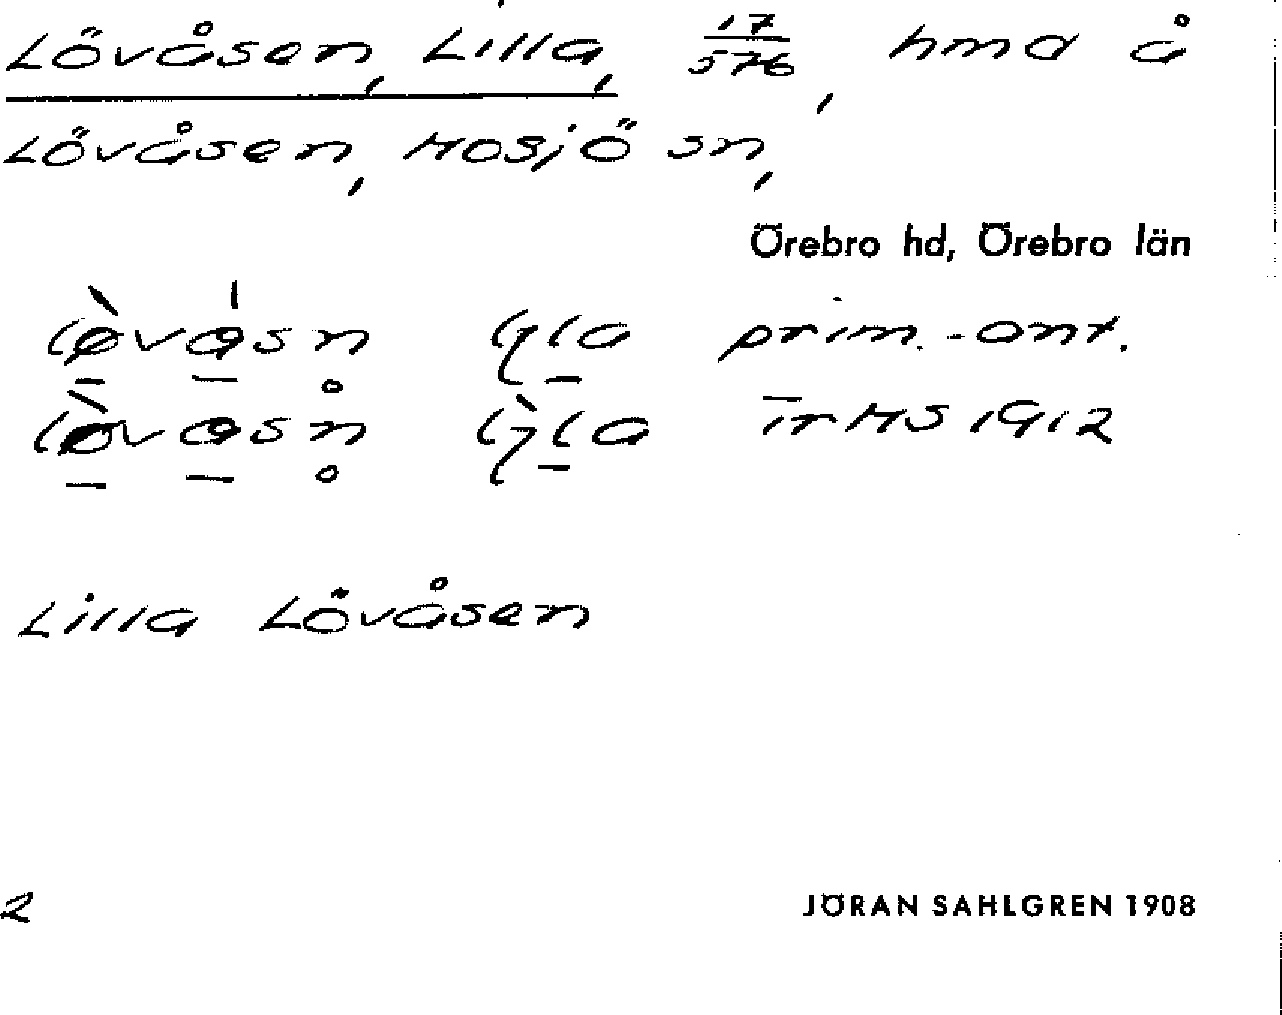 Lövåsen, Lilla, 17/576, hmd å
Lövåsen, Mosjö sn,
Örebro hd, Örebro län
prim.-ant.
ItMS 1912
Lilla Lövåsen
2
JÖRAN SAHLGREN 1908